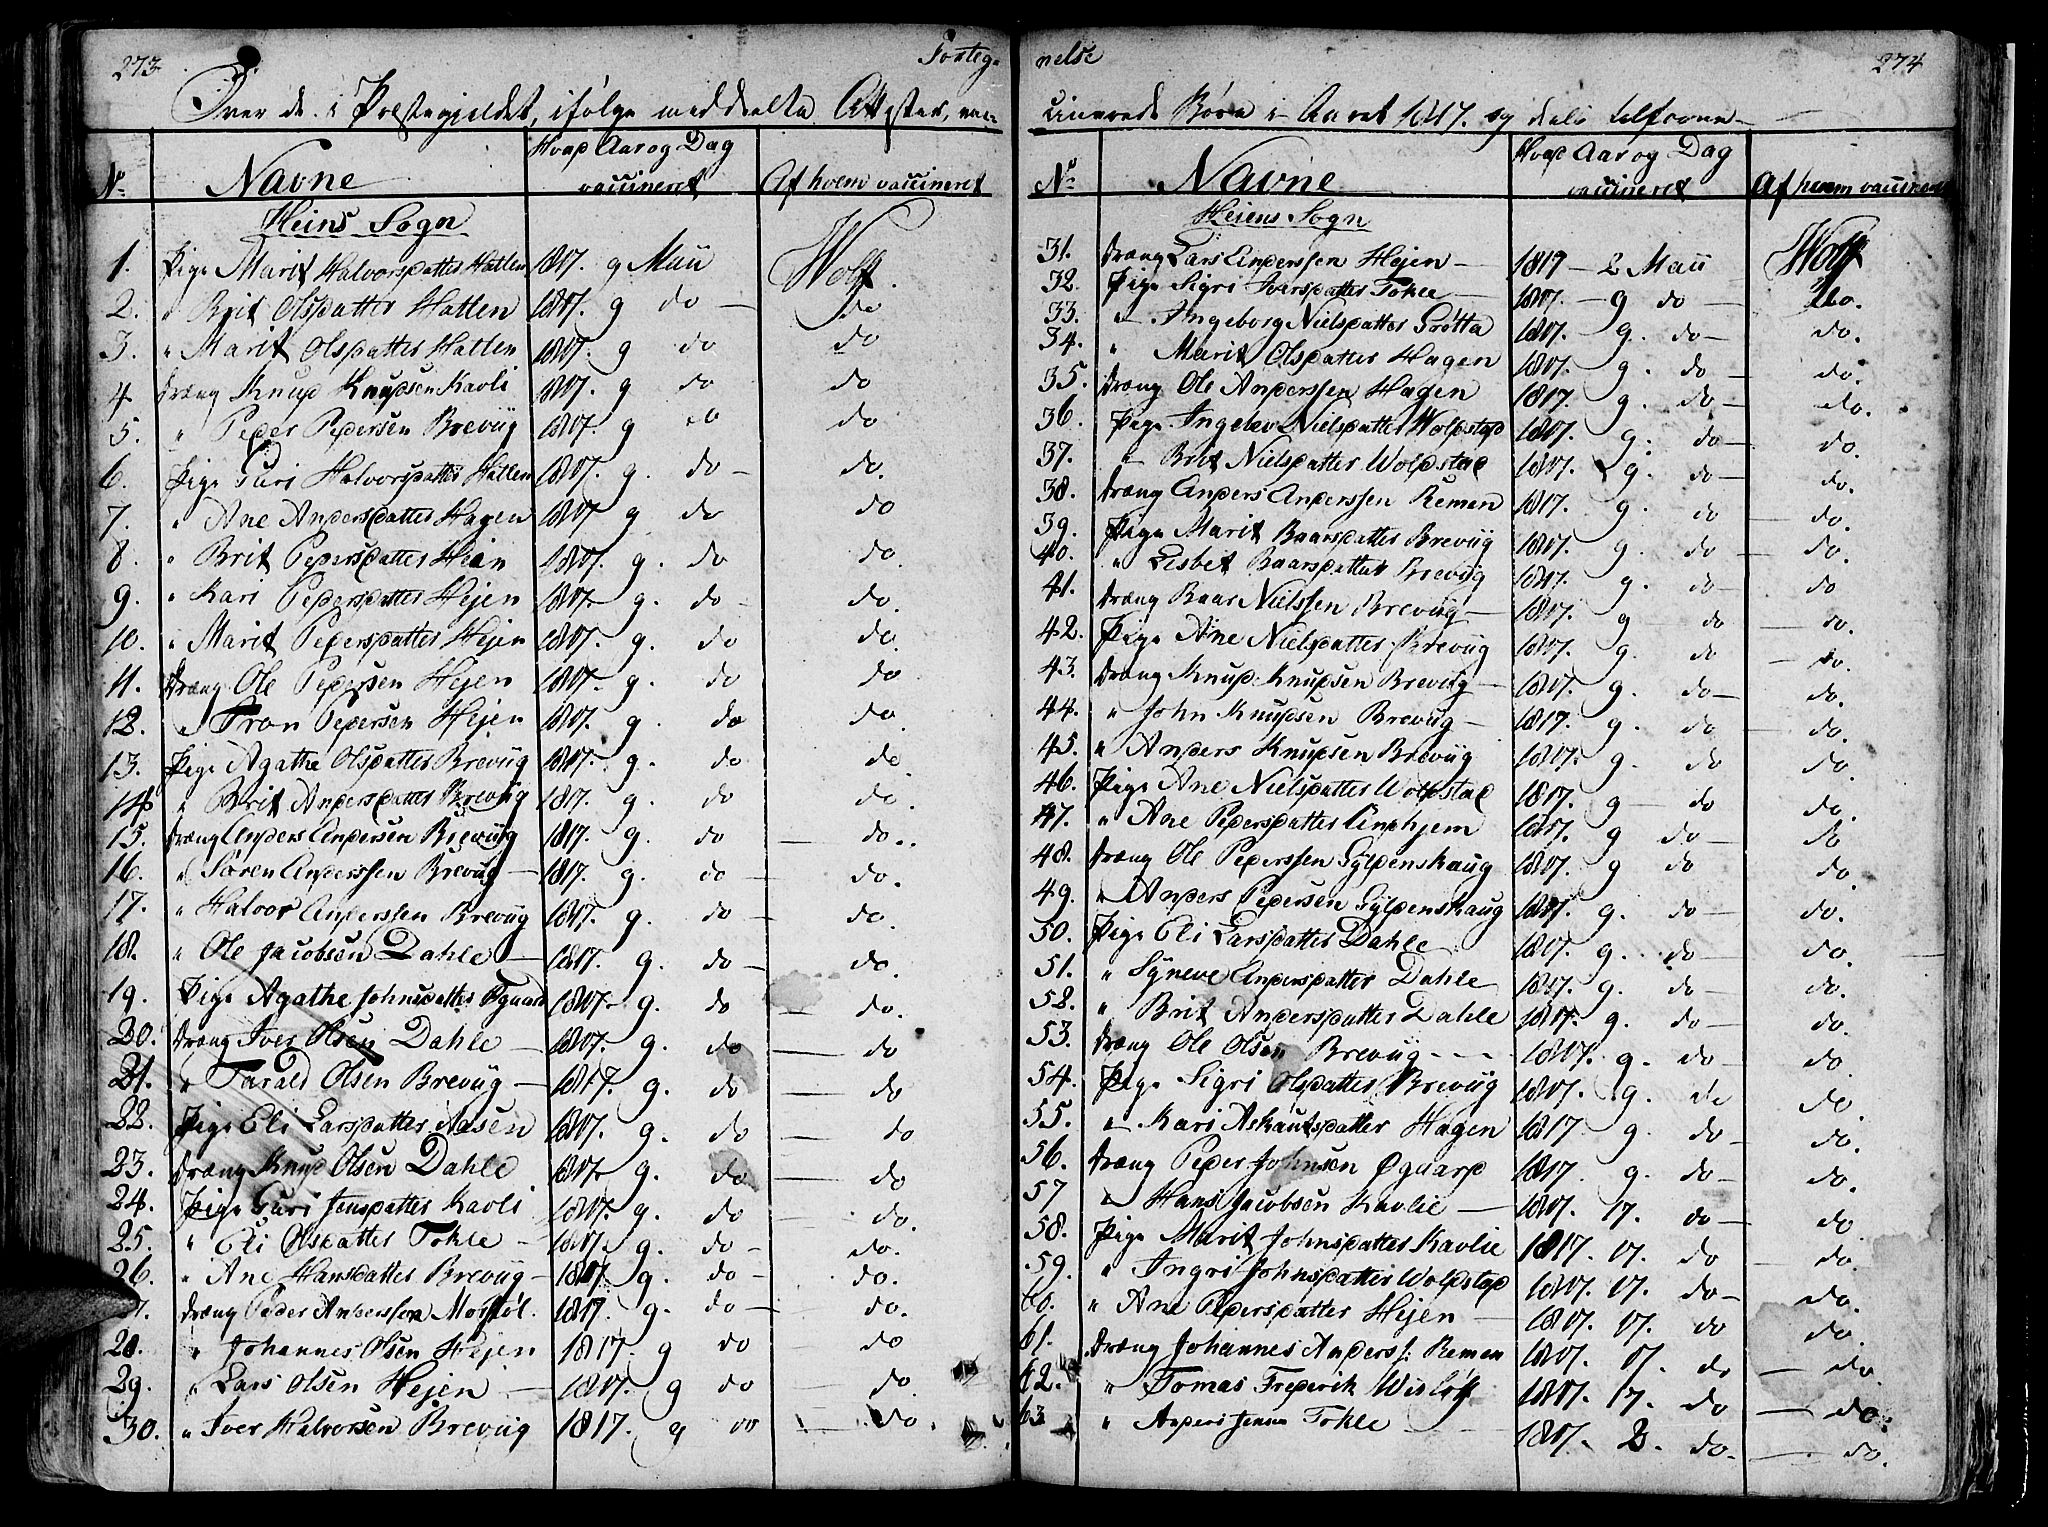 273
Forteg-
Over de i Præstegjeldet, ifølge meddeelte Attester, vac-
No
Navne
Hvad Aar og Dag vaccineret
Af hvem vaccineret
Heins Sogn
1. Pige Marit Halvorsdatter Hatlen 1817. 9 Maii Wolf.
2. " Brit Olsdatter Hatlen 1817. 9 do — do
3. " Marit Olsdatter Hatlen 1817. 9 do do
4 Dræng Knud Knudsen Kavli 1817. 9 do do
5. " Peder Pedersen Breviig 1817. 9 do do
6. Pige Guri Halvorsdatter Hatlen 1817. 9. do — do.
7. " Ane Andersdatter Hagen 1817 9 do do
8. " Brit Pedersdatter Heien 1817. 9. do do.
9. " Kari Pedersdatter Hejen 1817. 9. do — do.
10. " Marit Pedersdatter Hejen 1817. 9. do do.
11. Dræng Ole Pedersen Hejen 1817. 9. do do
12. " Tron Pedersen Hejen 1817. 9. do do.
13. Pige Agathe Olsdatter Breviig 1817. 9. do do.
14. " Brit Andersdatter Breviig 1817. 9. do do.
15. Dræng Anders Andersen Breviig 1817. 9. do — do..
16. " Søren Anderssen Breviig — 1817. 9. do — do.
17. " Halvor Anderssen Breviig 1817. 9. do — do.
18. " Ole Jacobsen Dahle — 1817. 9. do — do.
19. Pige Agathe Johnsdatter 1817. 9. do — do.
20. Dræng Iver Olsen Dahle — 1817. 9. do — do
21. " Tarald Olsen Breviig — 1817. 9. do — do
22. Pige Eli Larsdatter Aasen 1817. 9. do — do
23. Dræng Knud Olsen Dahle 1817. 9. do — do
24. Pige Guri Jensdatter Kavli 1817. 9. do — do.
25. " Eli Olsdatter Tokle — 1817. 9. do — do.
26. " Ane Hansdatter Breviig — 1817. 9. do — do.
27. Dræng Peder Anderssen 1817. 9. do — do.
28. " Johannes Olsen Hejen 1817. 9 do — do
29. " Lars Olsen Hejen — 1817. 9 do — do.
30. " Iver Halvorsen Breviig 1817. 9 do — do.
nelse
274
cinerede Børn i Aaret 1817. og
No
Navne
Hvad Aar og Dag vaccineret
Af hvem vaccineret
Heiens Sogn
31. Dræng Lars Anderssen Hejen — 1817 — 2 Maii Wolf
32. Pige Sigri Iversdatter Tokle — 1817. — 9 do — do.
33. " Ingeborg Nielsdatter Grøtta 1817. 9. do — do.
34. " Marit Olsdatter Hagen 1817. 9. do — do.
35. Dræng Ole Anderssen Hagen 1817. 9. do — do.
36. Pige Ingebor Nielsdatter Woldstad 1817. 9. do — do.
37. " Brit Nielsdatter Woldstad 1817. 9. do — do.
38. Dræng Anders Anderssen Remen 1817. 9. do — do.
39. Pige Marit Baarsdatter Breviig 1817. 9. do — do.
40. " Lisbet Baarsdatter Breviig 1817. 9. do — do
41. Dræng Baar Nielssen Breviig — 1817. 9 do — do.
42. Pige Ane Nielsdatter Breviig 1817. 9. do — do.
43. Dræng Knud Knudsen Breviig — 1817. 9. do — do.
44. " John Knudsen Breviig — 1817. 9. do — do.
45. " Anders Knudsen Breviig 1817. 9. do do.
46. Pige Ane Nielsdatter Woldstad 1817. 9 — do do.
47. " Ane Pedersdatter 1817. 9 do — do
48. Dræng Ole Pederssen Gyldenskaug 1817. 9 do do.
49. " Anders Pedersen Gyldenskaug 1817. 9. do — do.
50. Pige Eli Larsdatter Dahle 1817. 9. do — do.
51. " Syneve Andersdatter Dahle 1817. 9. do — do.
52. " Brit Andersdatter Dahle 1817. 9. do — do.
53. Dræng Ole Olsen Breviig - - - 1817. 9. do — do.
54. Pige Sigri Olsdatter Breviig 1817. 9. do do.
55. " Kari Askautsdatter Hagen 1817 9. do — do.
56. Dræng Peder Johnsen 1817. 9. do — do.
57 " Hans Jacobsen Kavlie — 1817. 17. do — do
58. Pige Marit Johnsdatter Kavlie 1817. 17. do — do.
59. " Ingri Johnsdatter Woldstad 1817. 17. do — do.
60. " Ane Pedersdatter Hejen — 1817. 17. do do.
61. Dræng Johannes Anders: Remen 1817. 17. do — do.
62. " Tomas Frederik 1817. 17. do — do.
63 " Anders Tokle 1817. 2. do — do.